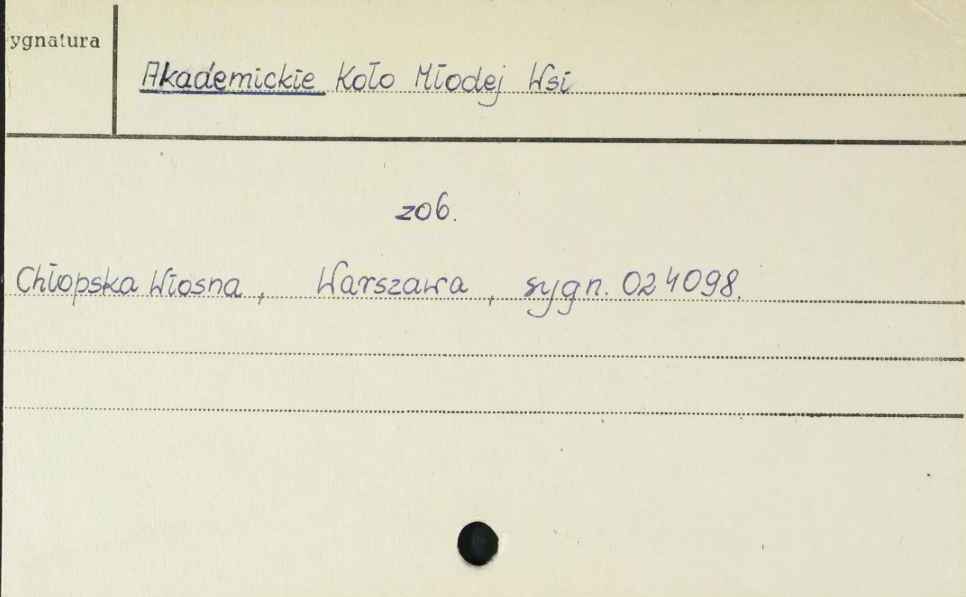 ygnatura
Akademickie Koło Młodej Wsi
zob.
Chłopska Wiosna, Warszawa, sygn. 024098.